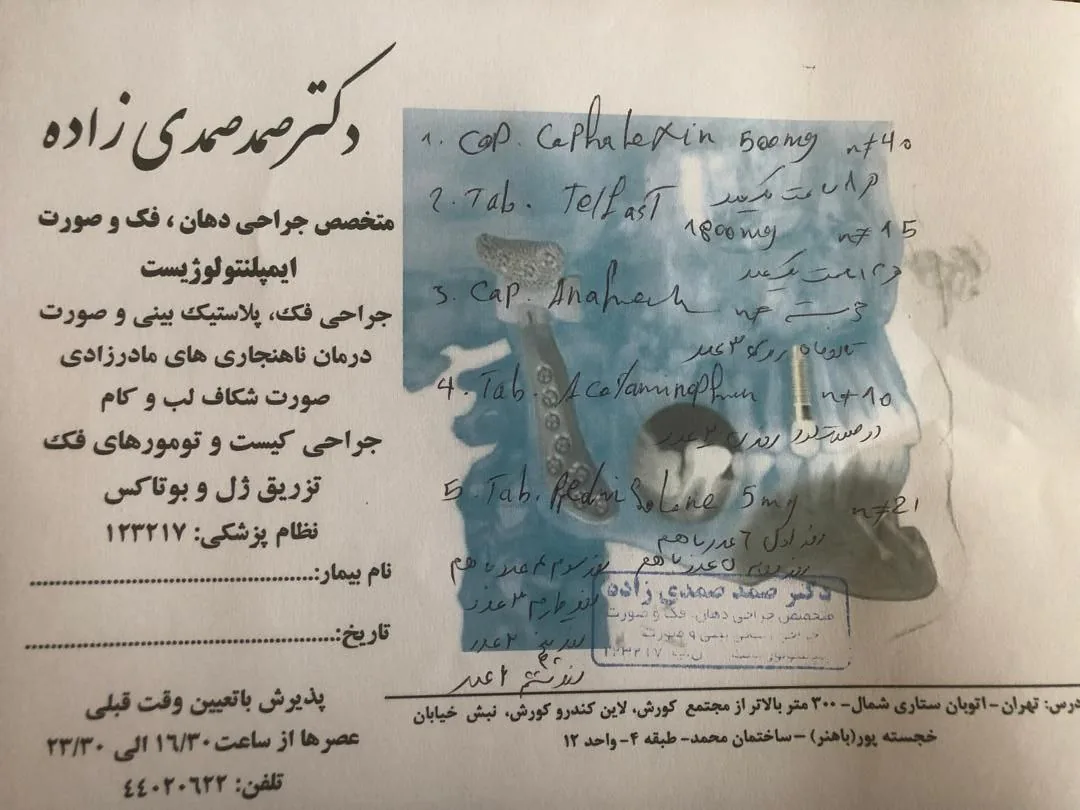 دکتر صمد صمدی زاده
متخصص جراحی دهان ، فک و صورت
ایمپلنتولوژیست
جراحی فک، پلاستیک بینی و صورت
درمان ناهنجاری های مادرزادی
صورت شکاف لب و کام
جراحی کیست و تومورهای فک
تزریق ژل و بوتاکس
نظام پزشکی: ۱۲۳۲۱۷
نام بیمار:
تاریخ:
پذیرش باتعیین وقت قبلی
عصرها از ساعت ۱۶/۳۰ الی ۲۳/۳۰
تلفن: ۴۴۰۲۰۶۲۲
1. Cap. Caphalexin 500mg n≠40
هر ۸ ساعت یک عدد
2. Tab. Telfast 1800mg n≠15
هر ۱۲ ساعت یک عدد
3. Cap. Anaheal
روزی ۳ عدد
4. Tab. Acetaminophen n≠10
در صورت درد روزی ۲ عدد
5. Tab. Prednisolone 5mg n≠21
روز اول ۶ عدد با هم
روز دوم ۵ عدد با هم
روز سوم ۴ عدد با هم
روز چهارم ۳ عدد
روز پنجم ۲ عدد
روز ششم ۱ عدد
دکتر صمد صمدی زاده
متخصص جراحی دهان، فک و صورت
۱۲۳۲۱۷
آدرس: تهران - اتوبان ستاری شمال - ۳۰۰ متر بالاتر از مجتمع کورش، لاین کندرو کورش، نبش خیابان
خجسته پور(باهنر) - ساختمان محمد- طبقه ۴- واحد ۱۲